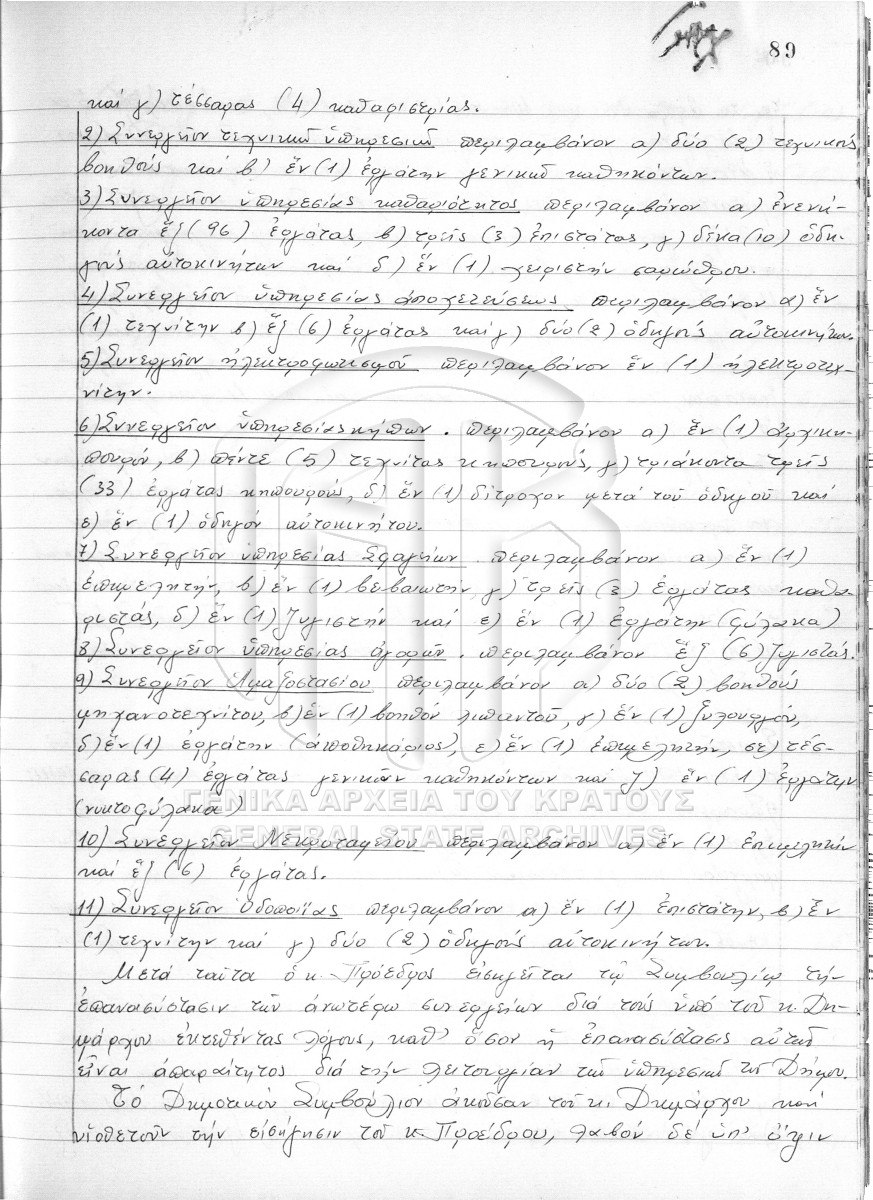 89
καί γ) τέσσαρας (4) καθαριστρίας.
2) Συνεργεῖον τεχνικῶν ὑπηρεσιῶν περιλαμβάνον α) δύο (2) τεχνικούς
βοηθούς καί β) ἕν (1) ἐργάτην γενικῶν καθηκόντων.
3) Συνεργεῖον ὑπηρεσίας καθαριότητος περιλαμβάνον α) ἐνενή-
κοντα ἕξ (96) ἐργάτας, β) τρεῖς (3) ἐπιστάτας, γ) δέκα (10) ὁδη-
γούς αὐτοκινήτων καί δ) ἕν (1) χειριστήν σαρώθρου.
4) Συνεργεῖον ὑπηρεσίας ἀποχετεύσεως περιλαμβάνον α) ἕν
(1) τεχνίτην β) ἕξ (6) ἐργάτας καί γ) δύο (2) ὁδηγούς αὐτοκινήτων.
5) Συνεργεῖον ἠλεκτροφωτισμοῦ περιλαμβάνον ἕν (1) ἠλεκτροτεχ-
νίτην.
6) Συνεργεῖον ὑπηρεσίας κήπων. περιλαμβάνον α) ἕν (1) ἀρχικη-
πουρόν, β) πέντε (5) τεχνίτας κηπουρούς, γ) τριάκοντα τρεῖς
(33) ἐργάτας κηπουρούς, δ) ἕν (1) δίτροχον μετά τοῦ ὁδηγοῦ καί
ε) ἕν (1) ὁδηγόν αὐτοκινήτου.
7) Συνεργεῖον ὑπηρεσίας Σφαγείων περιλαμβάνον α) ἕν (1)
ἐπιμελητήν, β) ἕν (1) βεβαιωτήν, γ) τρεῖς (3) ἐργάτας καθα-
ριστάς, δ) ἕν (1) ζυγιστήν καί ε) ἕν (1) ἐργάτην (φύλακα)
8) Συνεργεῖον ὑπηρεσίας ἀγορῶν. περιλαμβάνον ἕξ (6) ζυγιστάς.
9) Συνεργεῖον Ἁμαξοστασίου περιλαμβάνον α) δύο (2) βοηθούς
μηχανοτεχνίτου, β) ἕν (1) βοηθόν λιπαντοῦ, γ) ἕν (1) ξυλουργόν,
δ) ἕν (1) ἐργάτην (ἀποθηκάριος), ε) ἕν (1) ἐπιμελητήν, στ) τέσ-
σαρας (4) ἐργάτας γενικῶν καθηκόντων καί ζ) ἕν (1) ἐργάτην
(νυκτοφύλακα)
ΓΕΝΙΚΑ ΑΡΧΕΙΑ ΤΟΥ ΚΡΑΤΟΥΣ
GENERAL STATE ARCHIVES
10) Συνεργεῖον Νεκροταφείου περιλαμβάνον α) ἕν (1) ἐπιμελητήν
καί ἕξ (6) ἐργάτας.
11) Συνεργεῖον Ὁδοποιΐας περιλαμβάνον α) ἕν (1) ἐπιστάτην, β) ἕν
(1) τεχνίτην καί γ) δύο (2) ὁδηγούς αὐτοκινήτων.
Μετά ταῦτα ὁ κ. Πρόεδρος εἰσηγεῖται τῷ Συμβουλίῳ τήν
ἐπανασύστασιν τῶν ἀνωτέρω συνεργείων διά τούς ὑπό τοῦ κ. Δη-
μάρχου ἐκτεθέντας λόγους, καθ' ὅσον ἡ ἐπανασύστασις αὐτῶν
εἶναι ἀπαραίτητος διά τήν λειτουργίαν τῶν ὑπηρεσιῶν τοῦ Δήμου.
Τό Δημοτικόν Συμβούλιον ἀκοῦσαν τοῦ κ. Δημάρχου καί
υἱοθετοῦν τήν εἰσήγησιν τοῦ κ. Προέδρου, λαβόν δέ ὑπ' ὄψιν